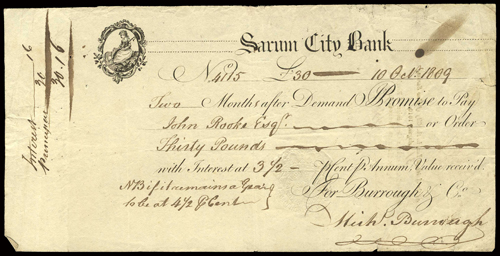 Sarum City Bank
No. 4115 £30 10 Octr. 1809
Two Months after Demand I Promise to Pay
John Rooke Esqr. or Order
Thirty Pounds
with Interest at 3 1/2 P Cent P Annum Value receiv'd.
NB if it remains a Year
to be at 4 1/2 P Cent
For Burrough & Co.
Michl. Burrough
Interest 16
Principal 30
30.16